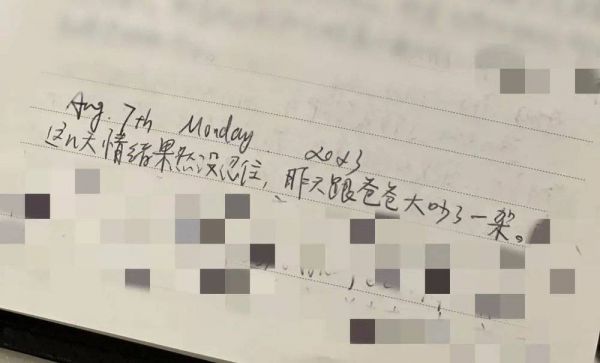 Aug. 7th Monday 2023
这几天情绪果然没忍住，昨天跟爸爸大吵了一架。